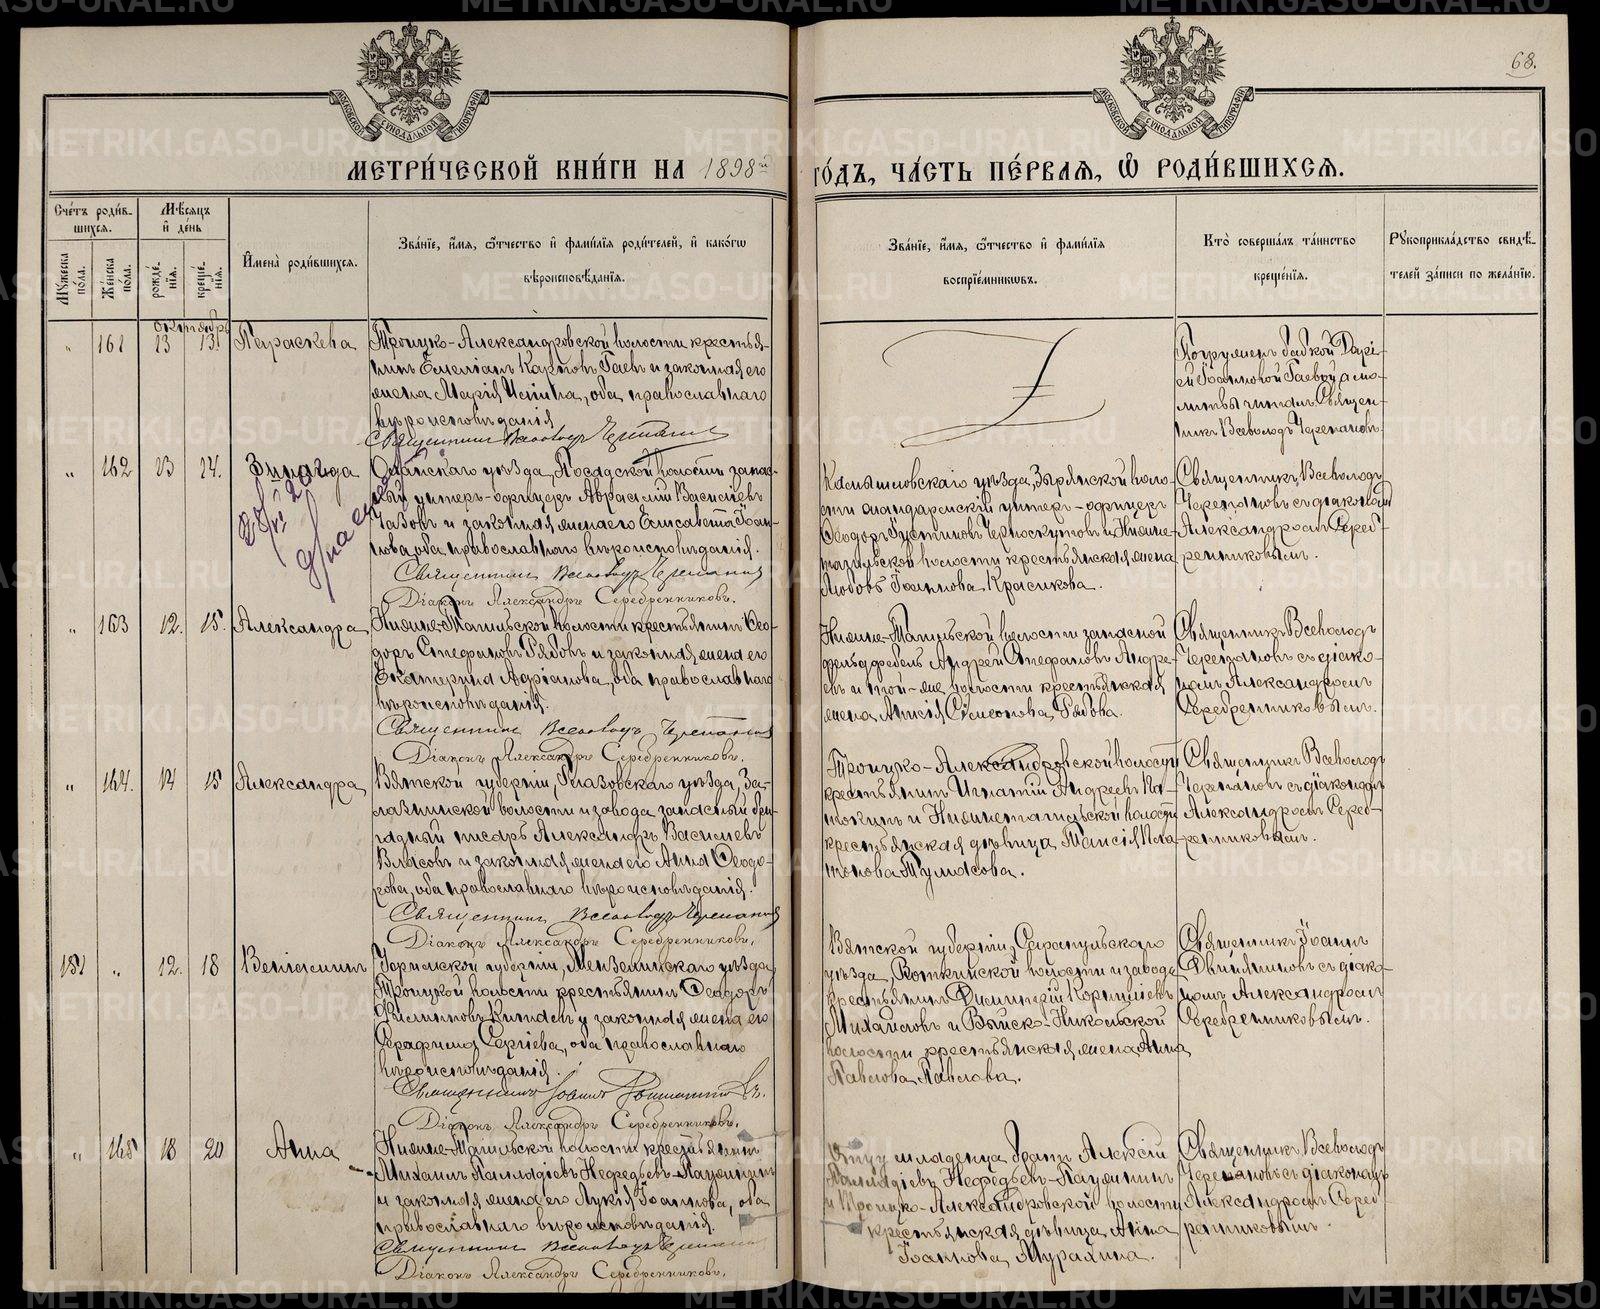 68.
МЕТРИ́ЧЕСКОЙ КНИ́ГИ НА 1898й
ГО́ДЪ, ЧА́СТЬ ПЕ́РВАѦ, Ѿ РОДИ́ВШИХСѦ.
Сче́тъ роди́в-
шихсѧ.
Мѣсѧцъ
и҆ де́нь
Мꙋ́жеска по́ла.
Же́нска по́ла.
рожде́-нїѧ.
креще́-нїѧ.
И҆мена̀ роди́вшихсѧ.
Зва́нїе, и҆́мѧ, ѻ҆́тчество и҆ фами́лїѧ роди́телей, и҆ како́гѡ
вѣроисповѣ́данїѧ.
Зва́нїе, и҆́мѧ, ѻ҆́тчество и҆ фами́лїѧ
воспрїе́мникѡвъ.
Кто̀ соверша́лъ та́инство
креще́нїѧ.
Рꙋкоприкла́дство свидѣ́-
телей за́писи по жела́нїю.
Октябрь
„ 161 13 13. Параскева
Троицко-Александровской волости крестья-
нинъ Емелiанъ Карповъ Гаевъ и законная его
жена Марiя Ильина, оба православнаго
вѣроисповѣданiя
Священникъ Всеволодъ Черепановъ
Погруженъ бабкой Дарi-
ей Iоанновой Гаевой, а мо-
литвы читалъ Священ-
никъ Всеволодъ Черепановъ.
„ 162 13 14. Зинаида
Оханскаго уѣзда, Посадской волости запас-
ный унтеръ-офицеръ Аврамiй Васильевъ
Чазовъ и законная жена его Елисавета Iоан-
нова, оба православнаго вѣроисповѣданiя.
Священникъ Всеволодъ Черепановъ
Дiаконъ Александръ Серебренниковъ.
Камышловскаго уѣзда, Зырянской воло-
сти жандармскiй унтеръ-офицеръ
Ѳеодоръ Iустиновъ Черноскутовъ и Нижне-
тагильской волости крестьянская жена
Любовь Iоаннова Красикова.
Священникъ Всеволодъ
Черепановъ съ дiакономъ
Александромъ Сереб-
ренниковымъ.
„ 163 12. 15. Александра
Нижне-Тагильской волости крестьянинъ Ѳео-
доръ Стефановъ Рябовъ и законная жена его
Екатерина Адрiанова, оба православнаго
вѣроисповѣданiя.
Священникъ Всеволодъ Черепановъ
Дiаконъ Александръ Серебренниковъ.
Нижне-Тагильской волости запасной
фельдфебель Андрей Стефановъ Андре-
евъ и той-же волости крестьянская
жена Анисiя Симеонова Рябова.
Священникъ Всеволодъ
Черепановъ съ дiако-
номъ Александромъ
Серебренниковымъ.
„ 164. 14 15 Александра
Вятской губернiи, Глазовскаго уѣзда, За-
лазнинской волости и завода запасный бри-
гадный писарь Александръ Васильевъ
Власовъ и законная жена его Анна Ѳеодо-
рова, оба православнаго вѣроисповѣданiя.
Священникъ Всеволодъ Черепановъ
Дiаконъ Александръ Серебренниковъ.
Троицко-Александровской волости
крестьянинъ Игнатiй Андреевъ
и Нижнетагильской волости
крестьянская дѣвица Таисiя Пла-
тонова Тумасова.
Священникъ Всеволодъ
Черепановъ съ дiакономъ
Александромъ Сереб-
ренниковымъ.
151 „ 12. 18 Венiаминъ
Уфимской губернiи, Мензелинскаго уѣзда,
Троицкой волости крестьянинъ Ѳеодоръ
Филипповъ и законная жена его
Серафима Сергiева, оба православнаго
вѣроисповѣданiя.
Священникъ Iоаннъ
Дiаконъ Александръ Серебренниковъ.
Вятской губернiи, Сарапульскаго
уѣзда, Воткинской волости и завода
крестьянинъ Димитрiй Корнилiевъ
Михайловъ и Выйско-Никольской
волости крестьянская жена Анна
Павлова Павлова.
Священникъ Iоаннъ
съ дiако-
номъ Александромъ
Серебренниковымъ.
„ 165 18 20 Анна
Нижне-Тагильской волости крестьянинъ
Михаилъ Палладiевъ Нефедьевъ-
и законная жена его Лукiя Iоаннова, оба
православнаго вѣроисповѣданiя.
Священникъ Всеволодъ Черепановъ
Дiаконъ Александръ Серебренниковъ.
Отцу младенца братъ Алексiй
Палладiевъ Нефедьевъ-
и Троицко-Александровской волости
крестьянская дѣвица Анна
Iоаннова Мурахина.
Священникъ Всеволодъ
Черепановъ съ дiакономъ
Александромъ Сереб-
ренниковымъ.
METRIKI.GASO-URAL.RU